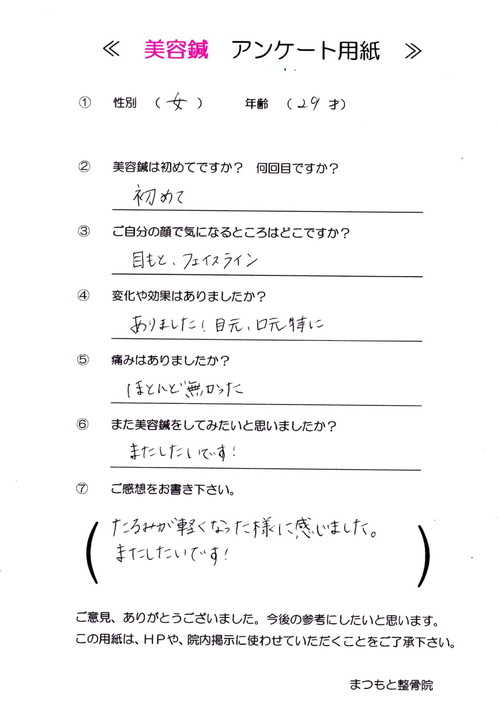 ≪ 美容鍼 アンケート用紙 ≫
① 性別 （ 女 ） 年齢 （ 29 才）
② 美容鍼は初めてですか？ 何回目ですか？
初めて
③ ご自分の顔で気になるところはどこですか？
目もと、フェイスライン
④ 変化や効果はありましたか？
ありました！目元、口元特に
⑤ 痛みはありましたか？
ほとんど無かった
⑥ また美容鍼をしてみたいと思いましたか？
またしたいです！
⑦ ご感想をお書き下さい。
たるみが軽くなった様に感じました。
またしたいです！
ご意見、ありがとうございました。今後の参考にしたいと思います。
この用紙は、ＨＰや、院内掲示に使わせていただくことをご了承下さい。
まつもと整骨院